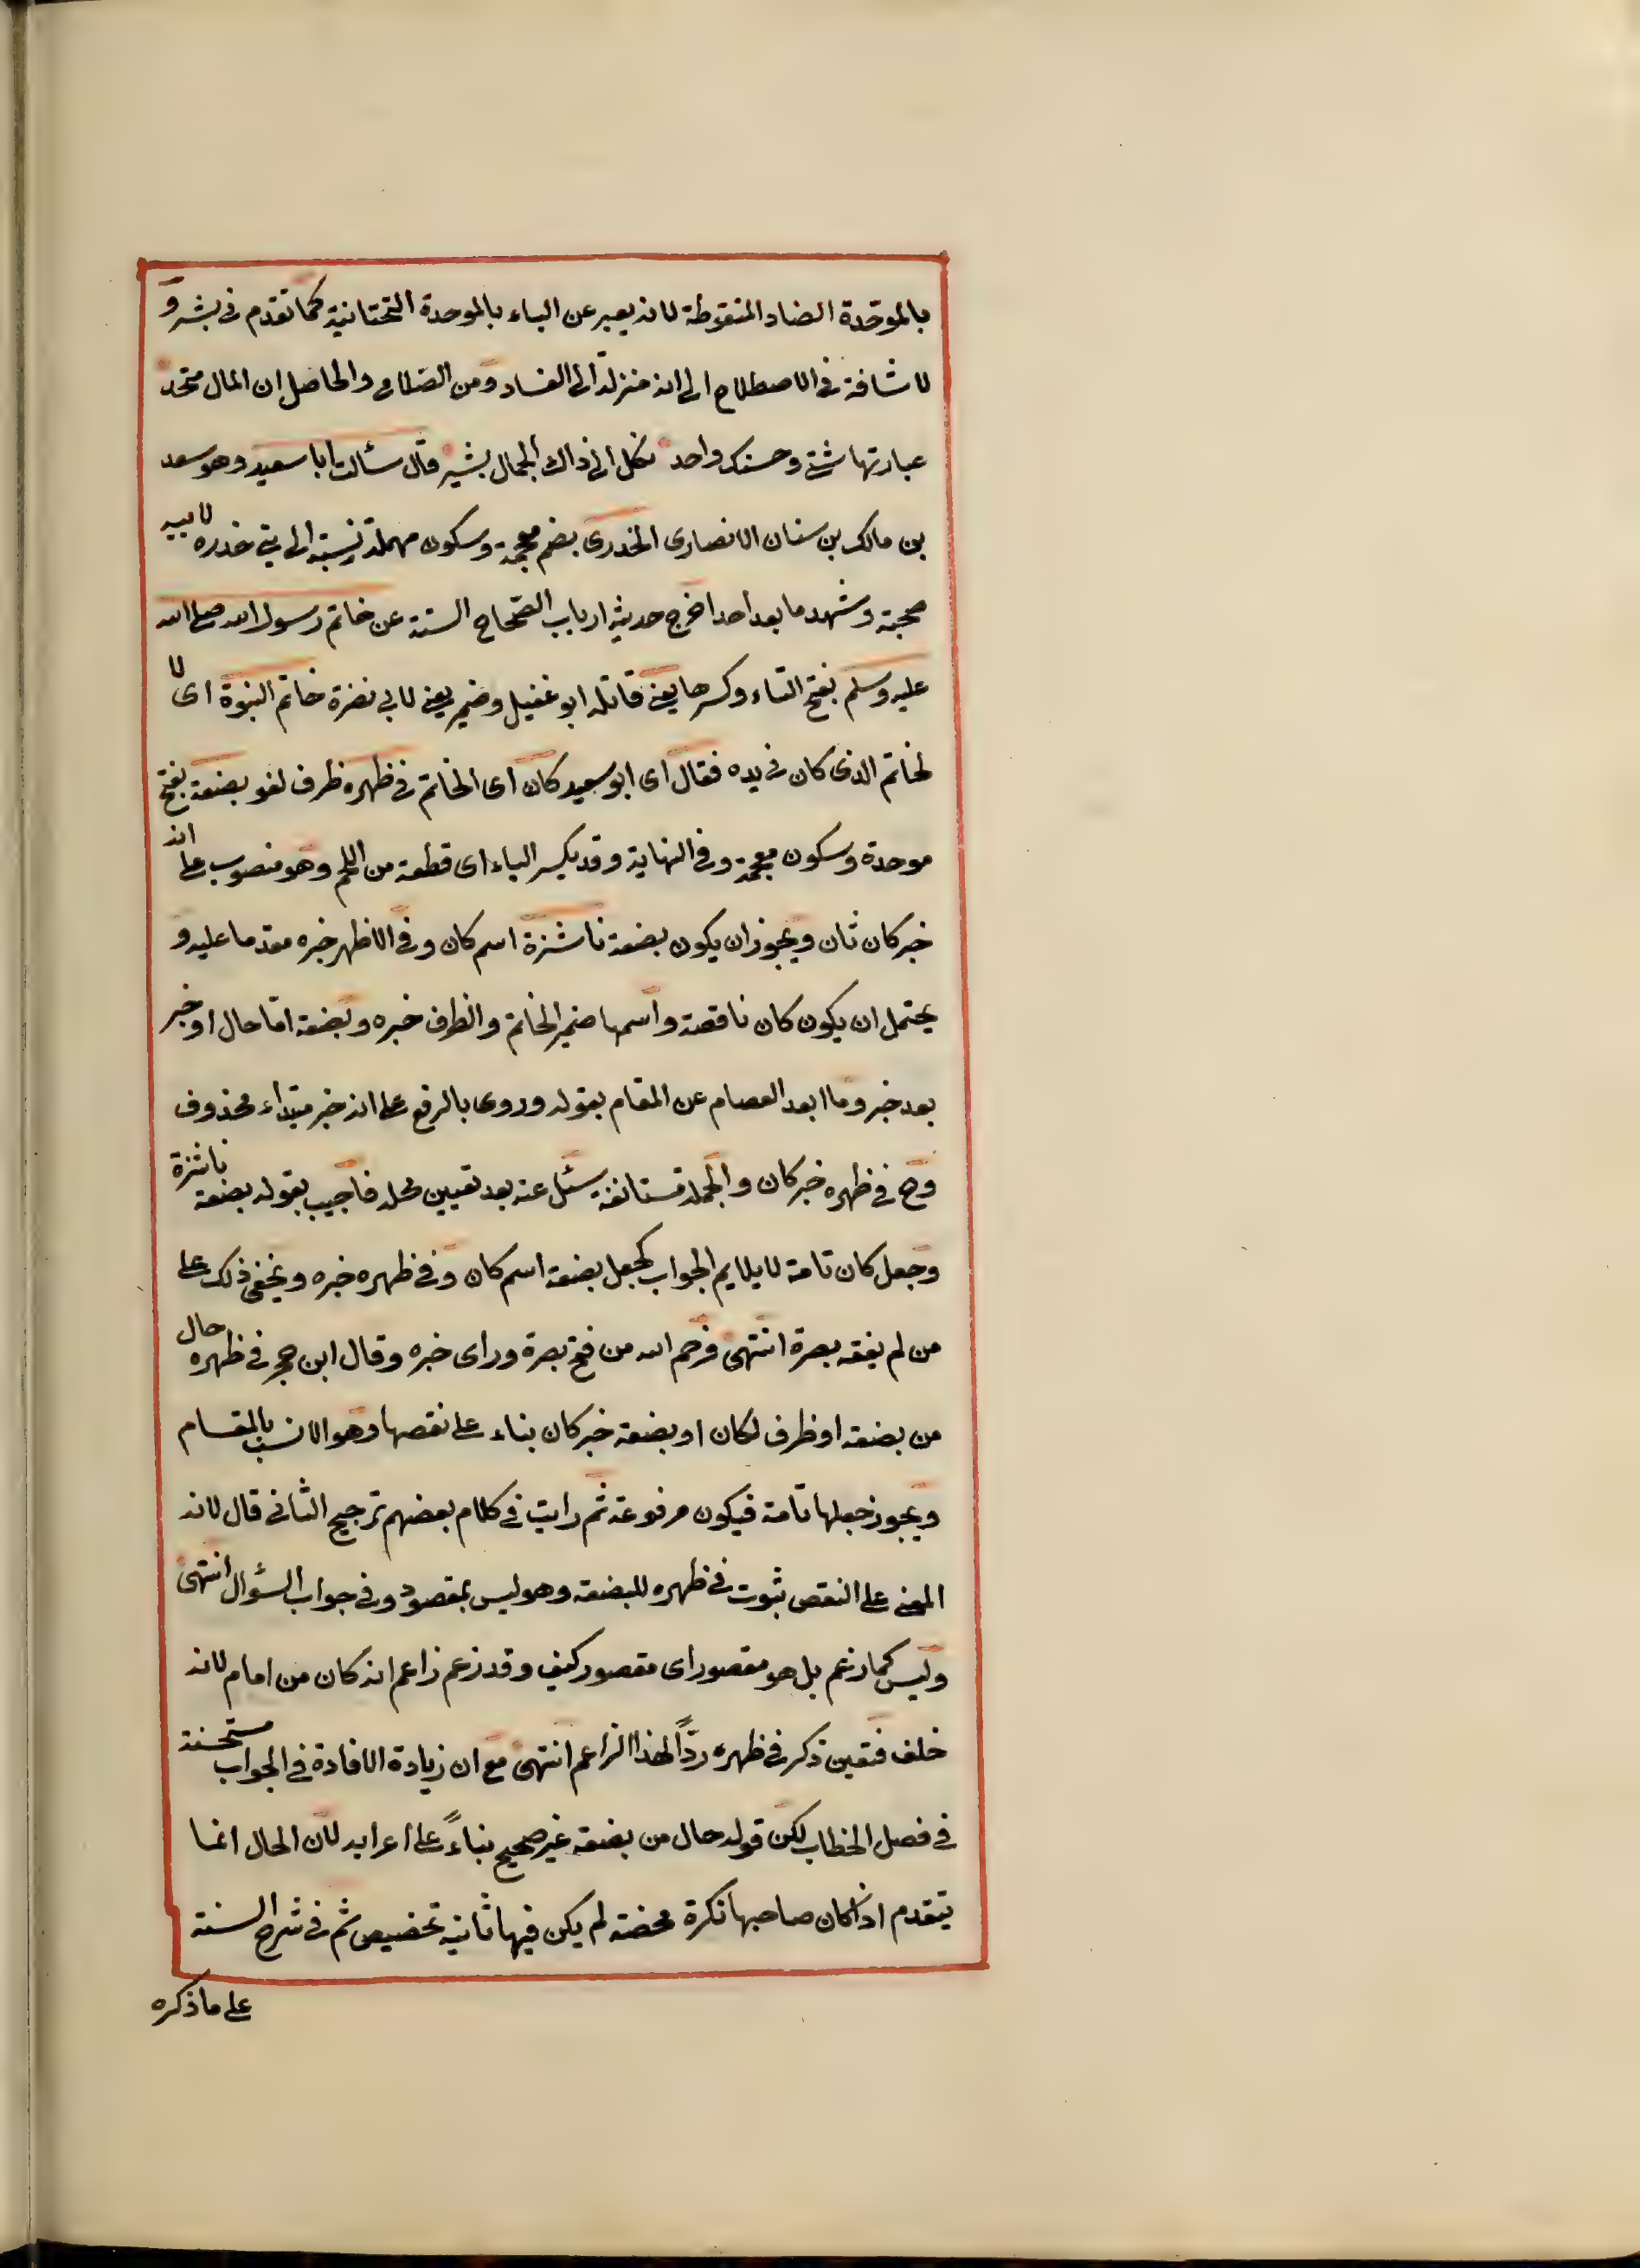 بالموحدة الضاد المنقوطة لانه يعبر عن الباء بالموحدة التحتانية كما تقدم فى بشر و
لا شافة فى الاصطلاح الى انه منزلة الى الفساد ومن الصلاح والحاصل ان المال متحد
عباراتنا شتى وحسنك واحد فكل الى ذاك الجمال يشير قال سئالت ابا سعيد وهو سعد
بن مالك بن سنان الانصارى الخدرى بضم معجمة وسكون مهملة نسبة الى بنى خدره لابيه
صحبة وشهد ما بعد احد اخرج حديثه ارباب الصحاح الستة عن خاتم رسول الله صلى الله
عليه وسلم بفتح التاء وكسرها يعنى قائله ابو عقيل وضمير يعنى لابى نضرة خاتم النبوة اى لا
لخاتم الذى كان فى يده فقال اى ابو سعيد كان اى الخاتم فى ظهره ظرف لغو بضعة بفتح
موحدة وسكون معجمة وفى النهاية وقد يكسر الباء اى قطعة من اللحم وهو منصوب على انه
خبر كان ثان ويجوز ان يكون بضعة ناشزة اسم كان وفى الاظهر خبره مقدما عليه و
يحتمل ان يكون كان ناقصة واسمها ضمير الخاتم والظرف خبره وبضعة اما حال او خبر
بعد خبر وما ابعد العصام عن المقام بقوله وروى بالرفع على انه خبر مبتداء محذوف
وح فى ظهره خبر كان والجملة مستانفة سئل عنه بعد تعيين محله فاجيب بقوله بضعة ناشزة
وجعل كان تامة لا يلايم الجواب كجعل بضعة اسم كان وفى ظهره خبره ويخفى ذلك على
من لم يفقه بصرة انتهى فرحم الله من فتح بصرة وراى خبره وقال ابن حجر فى ظهره حال
من بضعة او ظرف لكان او بضعة خبر كان بناء على نقصها وهو الانسب بالمقام
ويجوز جعلها تامة فيكون مرفوعة ثم رايت فى كلام بعضهم ترجيح الثانى قال لانه
المعنى على النقص ثبوت فى ظهره للبضعة وهو ليس بمقصود وفى جواب السؤال انتهى
وليس كما زعم بل هو مقصور اى مقصور كيف وقد زعم زاعم انه كان من امام لانه
خلف فتعين ذكر فى ظهره ردًا لهذا الزاعم انتهى مع ان زيادة الافادة فى الجواب مستحسنة
فى فصل الخطاب لكن قوله حال من بضعة غير صحيح بناءً على اعرابه لان الحال انما
يتقدم اذا كان صاحبها نكرة محضة لم يكن فيها ثانية تخصيص ثم فى شرح السنة
على ما ذكره